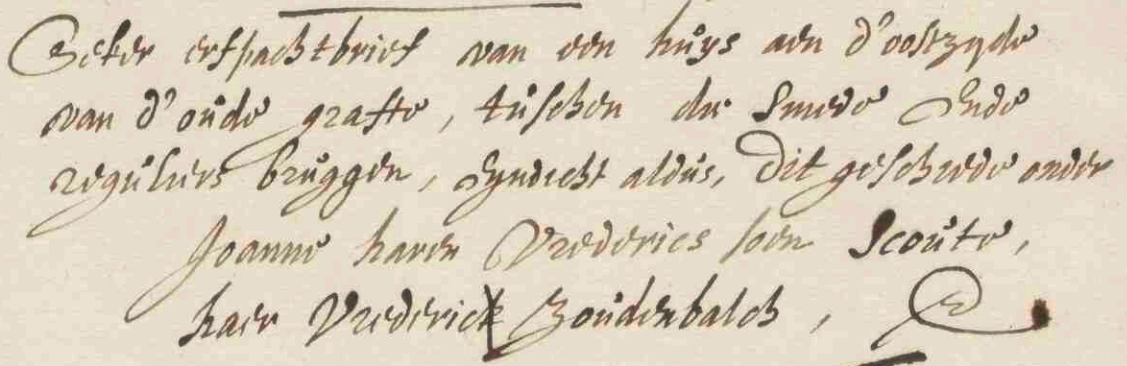 Seker erfpachtbrief van een huijs aen d'oostzyde
van d'oude grafte, tusschen die Smede Ende
reguliers bruggen, Eyndicht aldus, Dit geschiede onder
Joanne haren Vrederics soen Scoute,
haer Vrederick Zoudenbalch,